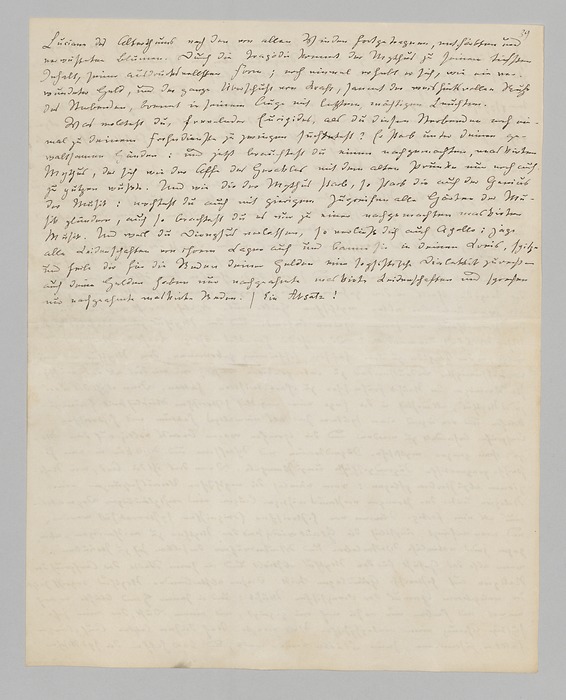 39
Luciane des Alterthums nach den von allen Winden fortgetragnen, entfärbten und
verwüsteten Blumen. Durch die Tragödie kommt der Mythus zu seinem tiefsten
Inhalt, seiner ausdrucksvollsten Form; noch einmal erhebt er sich, wie ein ver-
wundeter Held, und der ganze Überschuß von Kraft, sammt der weisheitsvollen Ruhe
des Sterbenden, brennt in seinem Auge mit letztem, mächtigen Leuchten.
Was wolltest du, frevelnder Euripides, als du diesen Sterbenden noch ein-
mal zu deinem Frohndienste zu zwingen suchtest? Er starb unter deinen ge-
waltsamen Händen: und jetzt brauchtest du einen nachgemachten, maskirten
Mythus, der sich wie der Affe des Herakles mit dem alten Prunke nur noch auf-
zuputzen wußte. Und wie dir der Mythus starb, so starb dir auch der Genius
der Musik: mochtest du auch mit gierigem Zugreifen alle Gärten der Mu-
sik plündern, auch so brachtest du es nur zu einer nachgemachten maskirten
Musik. Und weil du Dionysus verlassen, so verließ dich auch Apollo: jage
alle Leidenschaften von ihrem Lager auf und banne sie in deinen Kreis, spitze
und feile dir für die Reden deiner Helden eine sophistische Dialektik zurecht —
auch deine Helden haben nur nachgeahmte maskirte Leidenschaften und sprechen
nur nachgeahmte maskirte Reden. | Ein Absatz!